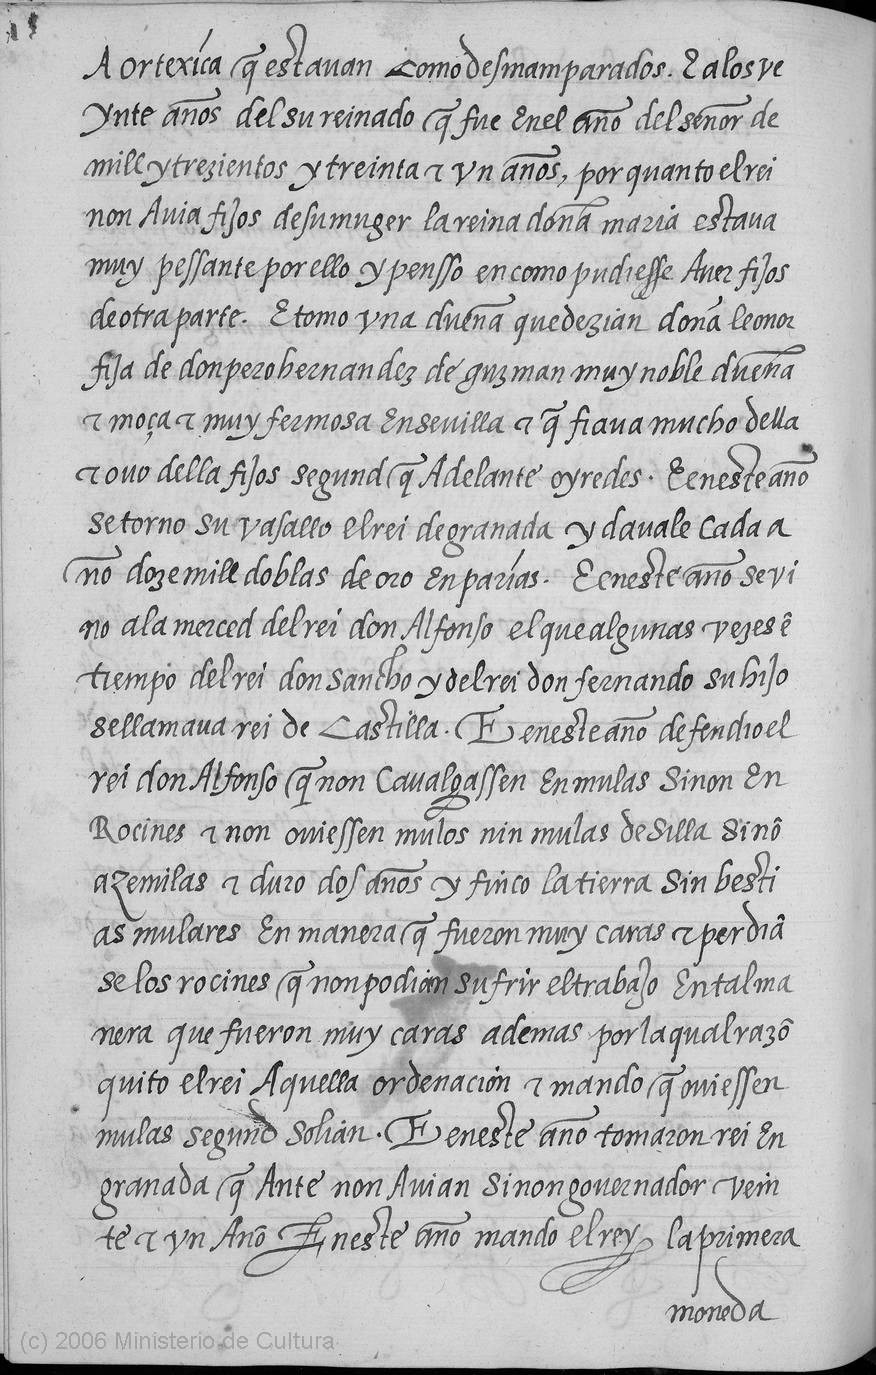 A ortexíca q̃ estavan Como desmamparados. E a los ve
ynte años del su reinado q̃ fue Enel año del señor de
mill y trezientos y treinta ⁊ vn años, por quanto el rei
non Avia fijos de su muger la reina doña maria estava
muy pessante por ello y pensso en como pudiesse Aver fijos
de otra parte. E tomo vna dueña que dezian doña leonor
fija de don pero hernandez de guzman muy noble dueña
⁊ moça ⁊ muy fermosa En sevilla ⁊ q̃ fiava mucho della
⁊ ovo della fijos segund q̃ Adelante oyredes. E en este año
se torno su vasallo el rei de granada y davale Cada a
ño doze mill doblas de oro En parías. E en este año se vi
no a la merced del rei don Alfonso el que algunas vezes ẽ
tiempo del rei don sancho y del rei don fernando su hijo
se llamava rei de Castilla. E en este año defendio el
rei don Alfonso q̃ non Cavalgassen En mulas Sinon En
Rocines ⁊ non oviessen mulos nin mulas de Silla Sinõ
azemilas ⁊ duro dos años y finco la tierra Sin besti
as mulares En manera q̃ fueron muy caras ⁊ perdiã
se los rocines q̃ non podian sufrir el trabajo En tal ma
nera que fueron muy caras ademas por la qual razõ
quito el rei Aquella ordenación ⁊ mando q̃ oviessen
mulas segund Solian. E en este año tomaron rei En
granada q̃ Ante non Avian Sinon governador vein
te ⁊ vn Año En este año mando el rey la primera
moneda
(c) 2006 Ministerio de Cultura